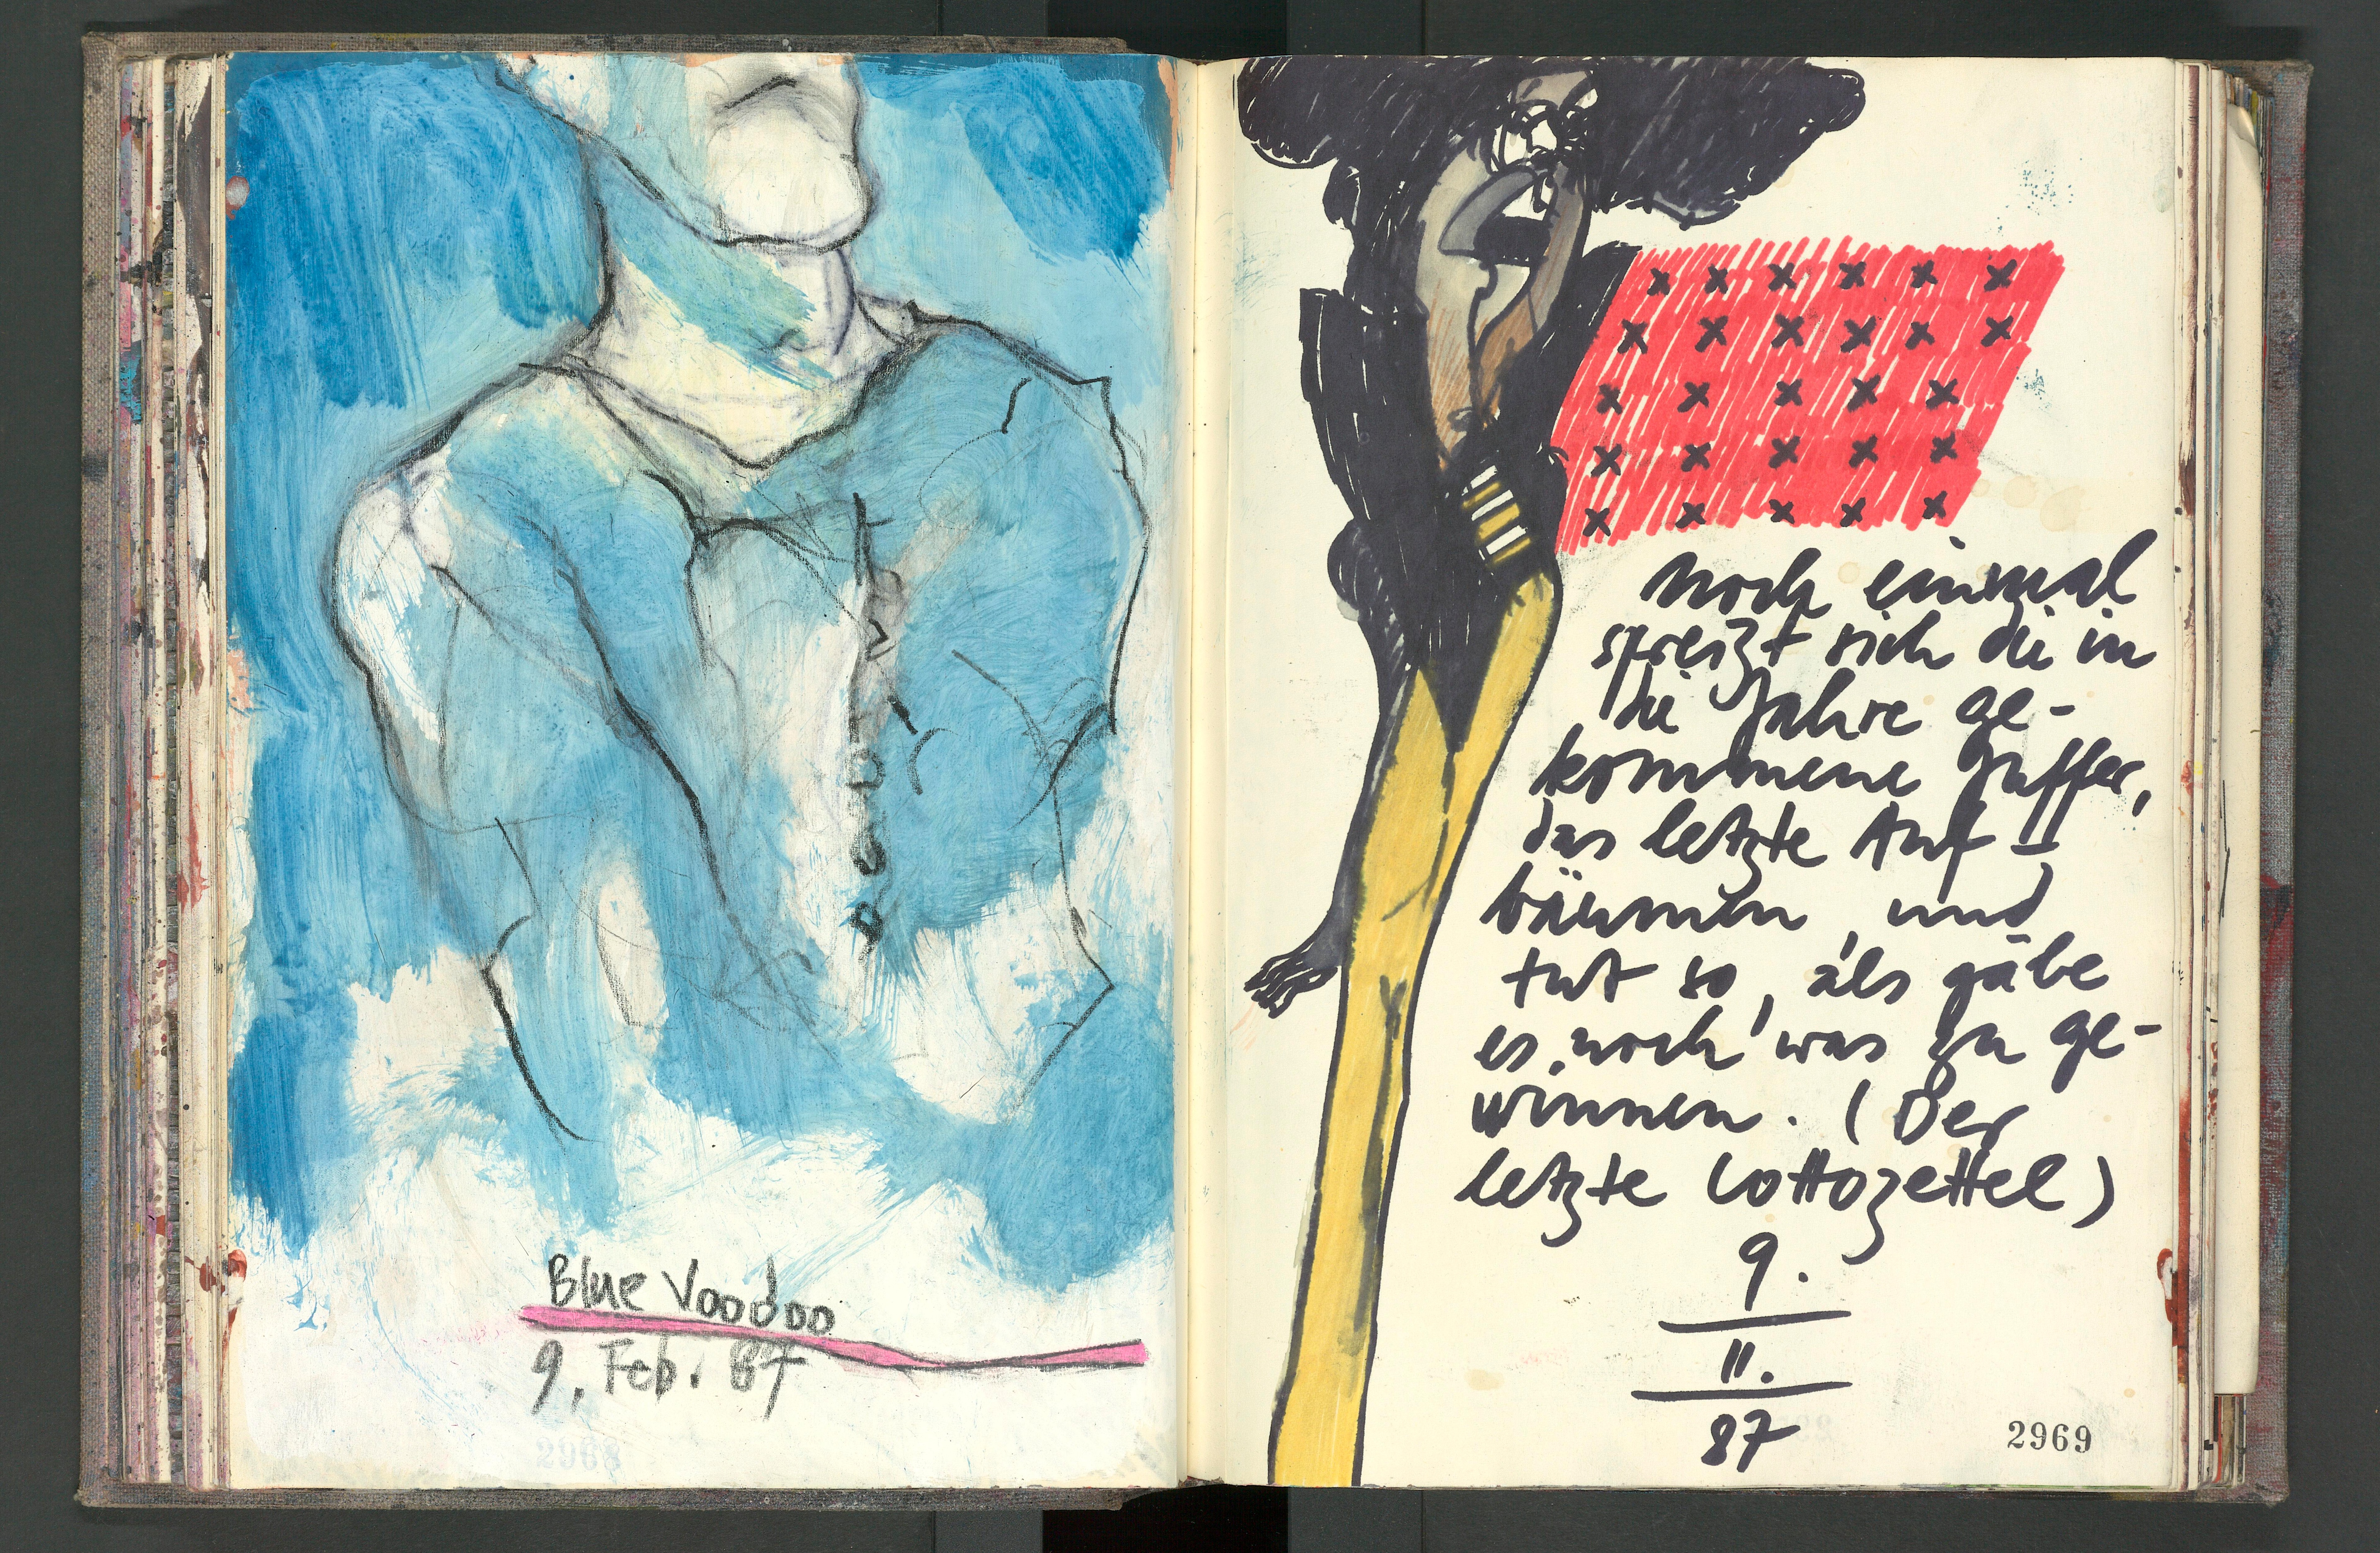 Blue Voodoo
9. Feb. 87
2968
noch einmal
spreizt sich die in
die Jahre ge-
kommene Juffer,
das letzte Auf-
bäumen, und
tut so, als gäbe
es noch was zu ge-
winnen. (Der
letzte Lottozettel)
9.
II.
87
2969